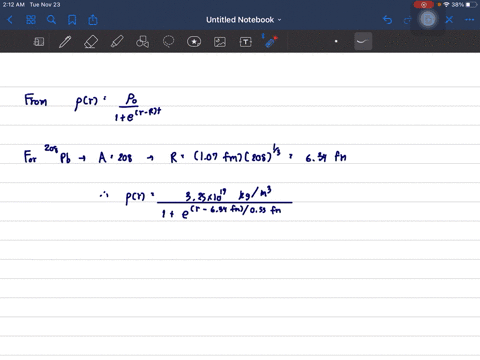 2:12 AM Tue Nov 23 38%
Untitled Notebook
From ρ(r) = ρ₀ / 1+e^(r-R)t
For ²⁰⁸Pb → A = 208 → R = (1.07 fm)(208)^1/3 = 6.34 fm
∴ ρ(r) = 3.25×10¹⁷ kg/m³ / 1 + e^(r - 6.34 fm)/0.55 fm